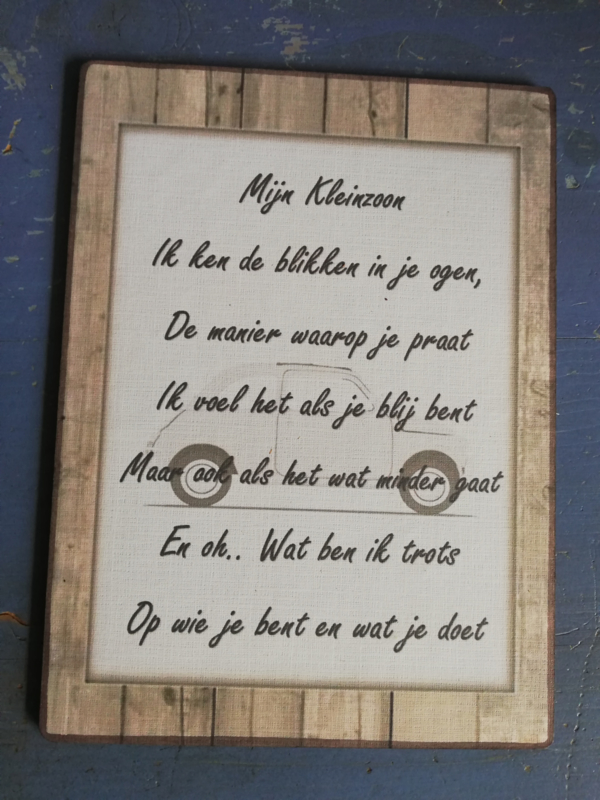 Mijn Kleinzoon
Ik ken de blikken in je ogen,
De manier waarop je praat
Ik voel het als je blij bent
Maar ook als het wat minder gaat
En oh.. Wat ben ik trots
Op wie je bent en wat je doet